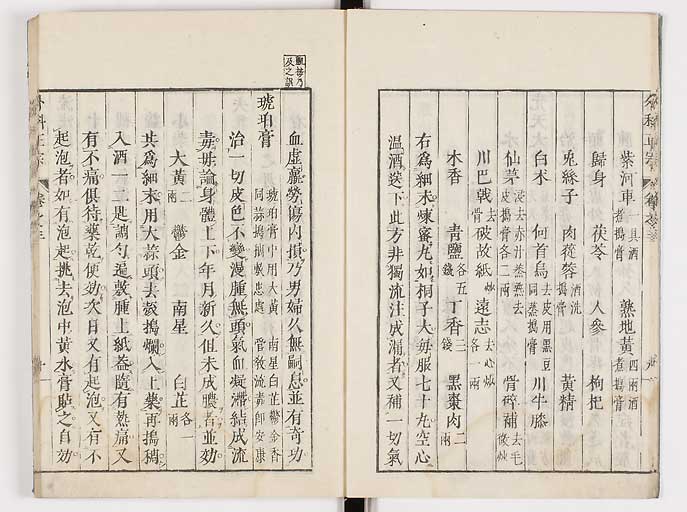 紫河車一具酒煮搗膏 熟地黃四兩酒煮搗膏
歸身 茯苓 人參 枸杞
兎絲子 肉蓯蓉酒洗搗膏 黃精
白朮 何首烏去皮用黑豆同蒸搗膏 川牛膝
仙茅浸去赤汁蒸熟去皮搗膏各二兩 骨碎補去毛微炒
川巴戟去骨 破故紙炒 遠志去心炒各一兩
木香 青鹽各五錢 丁香三錢 黑棗肉二兩
右爲細末煉蜜丸如桐子大每服七十丸空心
溫酒送下此方非獨流注成漏者又補一切氣
血虛羸勞傷內損乃男婦久無嗣息並有奇功
琥珀膏 琥珀膏中用大黃 南星白芷鬱金香 同蒜搗捌敷患處 管敎流毒卽安康
治一切皮色不變漫腫無頭氣血凝滯結成流
毒毋論身體上下年月新久但未成膿者並効
大黃二兩 鬱金 南星 白芷各一兩
共爲細末用大蒜頭去殼搗爛入上藥再搗稠
入酒一二匙調勻遍敷腫上紙蓋隨有熱痛又
有不痛俱待藥乾便効次日又有起泡又有不
起泡者如有泡起挑去泡中黃水膏貼之自効
外科正宗 卷之三